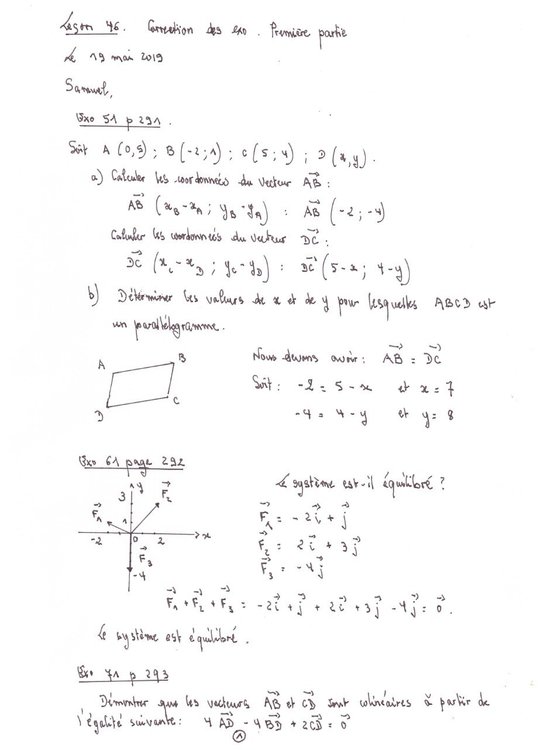 Leçon 46. Correction des exo. Première partie
Le 19 mai 2019
Samuel,
Exo 51 p 291.
Soit A (0,5) ; B (-2;1) ; C (5;4) ; D (x,y).
a) Calculer les coordonnées du vecteur AB⃗ :
AB⃗ (x_B - x_A ; y_B - y_A) : AB⃗ (-2 ; -4)
Calculer les coordonnées du vecteur DC⃗ :
DC⃗ (x_C - x_D ; y_C - y_D) : DC⃗ (5-x ; 4-y)
b) Déterminer les valeurs de x et de y pour lesquelles ABCD est
un parallélogramme.
A B
D C
Nous devons avoir : AB⃗ = DC⃗
Soit : -2 = 5 - x et x = 7
-4 = 4 - y et y = 8
Exo 61 page 292
y
3
F₁⃗ F₂⃗
1
-2 0 2 x
F₃⃗
-4
Le système est-il équilibré ?
F₁⃗ = -2i⃗ + j⃗
F₂⃗ = 2i⃗ + 3j⃗
F₃⃗ = -4j⃗
F₁⃗ + F₂⃗ + F₃⃗ = -2i⃗ + j⃗ + 2i⃗ + 3j⃗ - 4j⃗ = 0⃗.
Le système est équilibré.
Exo 71 p 293
Démontrer que les vecteurs AB⃗ et CD⃗ sont colinéaires à partir de
l'égalité suivante : 4 AD⃗ - 4 BD⃗ + 2 CD⃗ = 0⃗
1